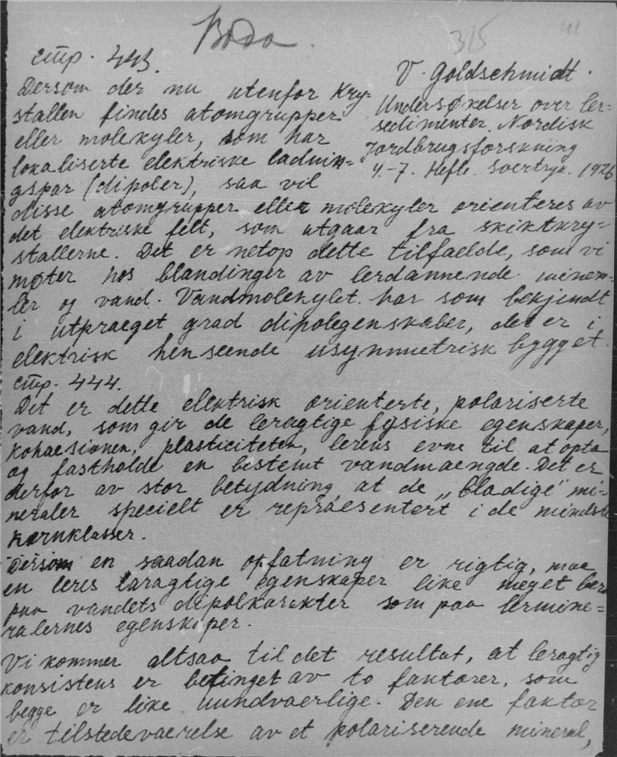 Вода.
315
41
стр. 443.
V. Goldschmidt.
Undersøkelser over ler=
sedimenter. Nordisk
jordbrugsforskning
4.-7. Hefte. Saertryk. 1926
Dersom der nu utenfor kry-
stallen findes atomgrupper
eller molekyler, som har
lokaliserte elektriske ladnin-
gspar (dipoler), saa vil
disse atomgrupper eller molekyler orienteres av
det elektriske felt, som utgaar fra skiktkry=
stallerne. Det er netop dette tilfaelde, som vi
møter hos blandinger av lerdannende minera-
ler og vand. Vandmolekylet har som bekjendt
i utpraeget grad dipolegenskaber, det er i
elektrisk henseende usymmetrisk bygget.
стр. 444.
Det er dette elektrisk orienterte, polariserte
vand, som gir de leragtige fysiske egenskaper,
kohaesionen, plasticiteten, lerens evne til at opta
og fastholde en bestemt vandmaengde. Det er
derfor av stor betydning at de „bladige" mi-
neraler specielt er repraesentert i de mindste
kornklasser.
Dersom en saadan opfatning er rigtig, maa
en leres leragtige egenskaper like meget bero
paa vandets dipolkarakter som paa lermine=
ralernes egenskaper.
Vi kommer altsaa til det resultat, at leragtig
konsistens er betinget av to faktorer, som
begge er like uundvaerlige. Den ene faktor
er tilstedevaerelse av et polariserende mineral,